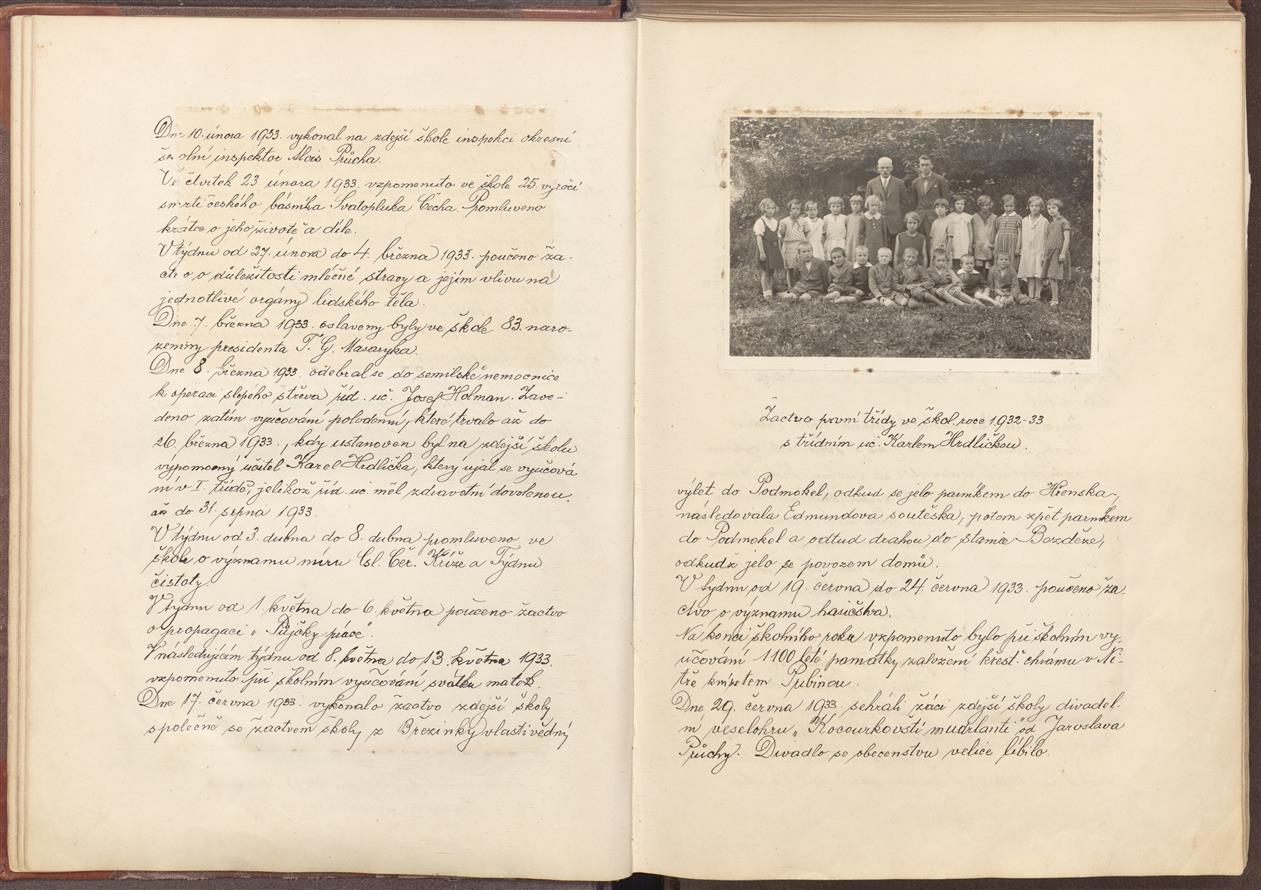 Dne 10. února 1933 vykonal na zdejší škole inspekci okresní
školní inspektor Alois Průcha.
Ve čtvrtek 23 února 1933. vzpomenuto ve škole 25. výročí
smrti českého básníka Svatopluka Čecha. Promluveno
krátce o jeho životě a díle.
V týdnu od 27. února do 4. března 1933. poučeno žá-
ctvo o důležitosti mléčné stravy a jejím vlivu na
jednotlivé orgány lidského těla.
Dne 7. března 1933. oslaveny byly ve škole 83. naro-
zeniny presidenta T. G. Masaryka.
Dne 8. března 1933. odebral se do semilské nemocnice
k operaci slepého střeva říd. uč. Josef Holman. Zave-
deno zatím vyučování polodenní, které trvalo až do
26. března 1933., kdy ustanoven byl na zdejší školu
výpomocný učitel Karel Hrdlička, který ujal se vyučová
ní v I. třídě, jelikož říd. uč. měl zdravotní dovolenou
až do 31. srpna 1933.
V týdnu od 3. dubna do 8. dubna promluveno ve
škole o významu míru Čsl. Čer. Kříže a Týdnu
čistoty.
V týdnu od 1. května do 6. května poučeno žactvo
o propagaci „Půjčky práce".
V následujícím týdnu od 8. května do 13. května 1933.
vzpomenuto při školním vyučování svátku matek.
Dne 17. června 1933. vykonalo žactvo zdejší školy
společně se žactvem školy z Březinky vlastivědný
Žactvo první třídy ve škol. roce 1932-33
s třídním uč. Karlem Hrdličkou.
výlet do Podmokel, odkud se jelo parníkem do Hřenska,
následovala Edmundova soutěska, potom zpět parníkem
do Podmokel a odtud drahou do stanice Bezděze,
odkudž jelo se povozem domů.
V týdnu od 19. června do 24. června 1933. poučeno žá
ctvo o významu hasičstva.
Na konci školního roku vzpomenuto bylo při školním vy-
učování 1100 leté památky založení křesť. chrámu v Ni-
tře knížetem Pribinou.
Dne 29. června 1933. sehráli žáci zdejší školy divadel-
ní veselohru „Kocourkovští mudrlanti" od Jaroslava
Průchy. Divadlo se obecenstvu velice líbilo.